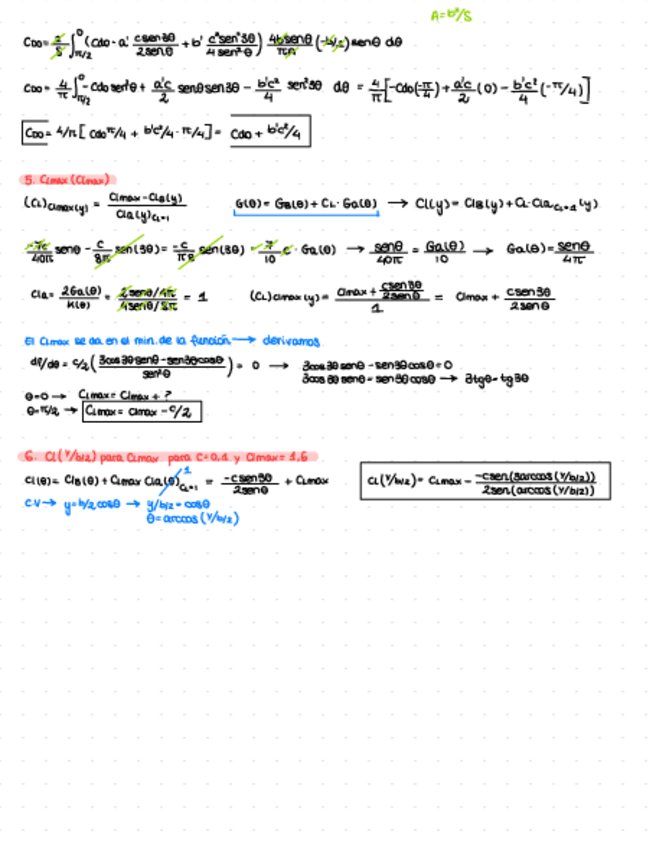 A=b²/S
C_D0 = 2/S ∫_{π/2}^{0} (Cdo - a' csen3θ/2senθ + b' c²sen²3θ/4sen²θ) 4bsenθ/πA (-b/2) senθ dθ
C_D0 = 4/π ∫_{π/2}^{0} -Cdo sen²θ + a'c/2 senθ sen3θ - b'c²/4 sen²3θ dθ = 4/π [-Cdo(-π/4) + a'c/2 (0) - b'c²/4 (-π/4)]
C_D0 = 4/π [Cdo π/4 + b'c²/4 · π/4] = Cdo + b'c²/4
5. CLmax (Clmax)
(CL)Clmax(y) = Clmax - Clb(y) / Cla(y)CL=1   G(θ) = Gb(θ) + CL · Ga(θ) → Cl(y) = Clb(y) + CL · Cla CL=1 (y)
senθ - c/8π sen(3θ) = -c/π8 sen(3θ) · Ga(θ) → senθ/40π = Ga(θ)/10 → Ga(θ) = senθ/4π
Cla = 2Ga(θ)/K(θ) = 2senθ/4π / 4senθ/8π = 1   (CL)Clmax(y) = Clmax + csen3θ/2senθ / 1 = Clmax + csen3θ/2senθ
El CLmax se da en el min. de la función → derivamos
df/dθ = c/2 (3cos3θsenθ - sen3θcosθ / sen²θ) = 0 → 3cos3θsenθ - sen3θcosθ = 0
3cos3θsenθ = sen3θcosθ → 3tgθ = tg3θ
θ=0 → CLmax = Clmax + ?
θ=π/2 → CLmax = Clmax - c/2
6. Cl(y/b/2) para CLmax para c=0,1 y Clmax=1,6
Cl(θ) = Clb(θ) + CLmax Cla(θ)CL=1 = -csen3θ/2senθ + CLmax   1   CL(y/b/2) = CLmax - -csen(3arccos(y/b/2)) / 2sen(arccos(y/b/2))
C.V → y=b/2 cosθ → y/b/2 = cosθ
θ=arccos(y/b/2)